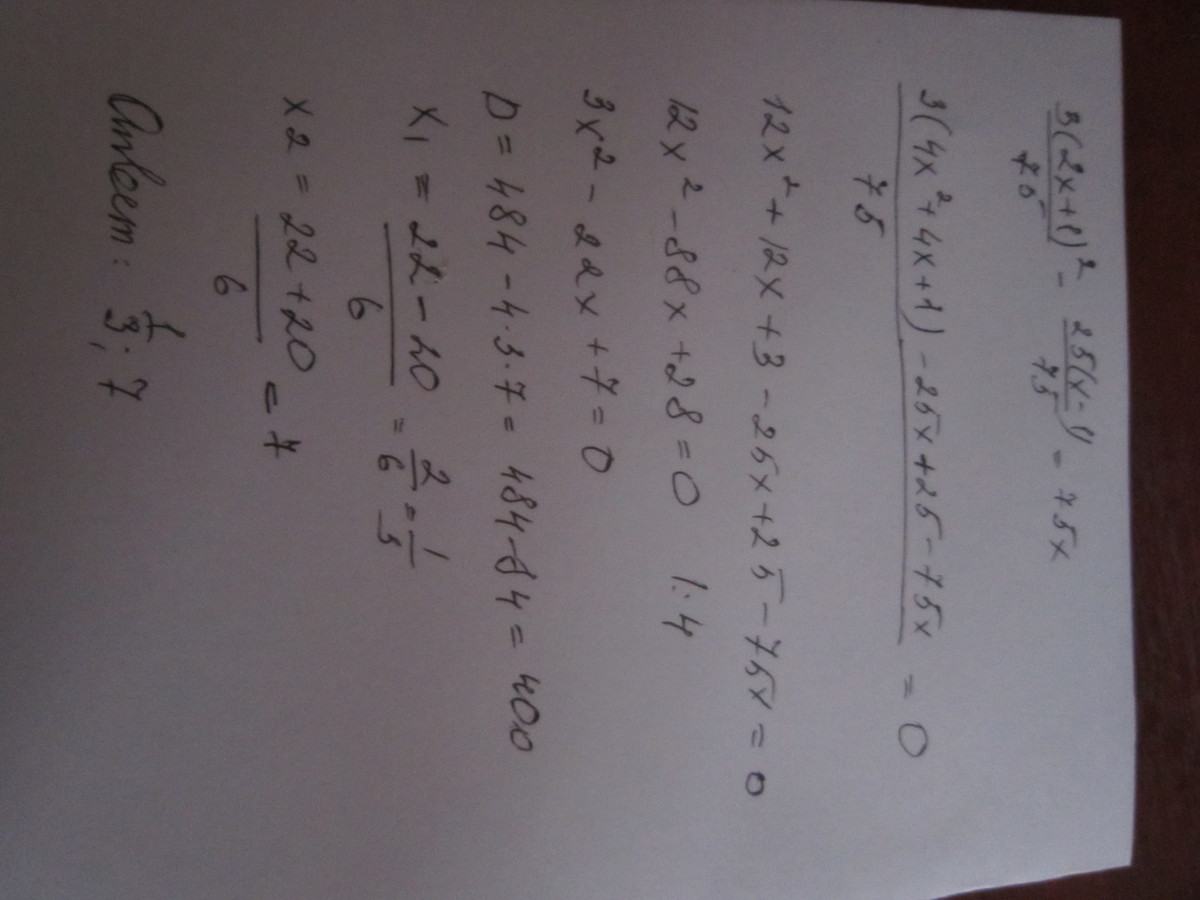 3(2x+1)²/75 - 25(x-1)/75 = 75x
3(4x²+4x+1)-25x+25-75x/75 = 0
12x²+12x+3-25x+25-75x=0
12x²-88x+28=0 |:4
3x²-22x+7=0
D=484-4·3·7=484-84=400
x₁=22-20/6=2/6=1/3
x2=22+20/6=7
Ответ: 1/3; 7